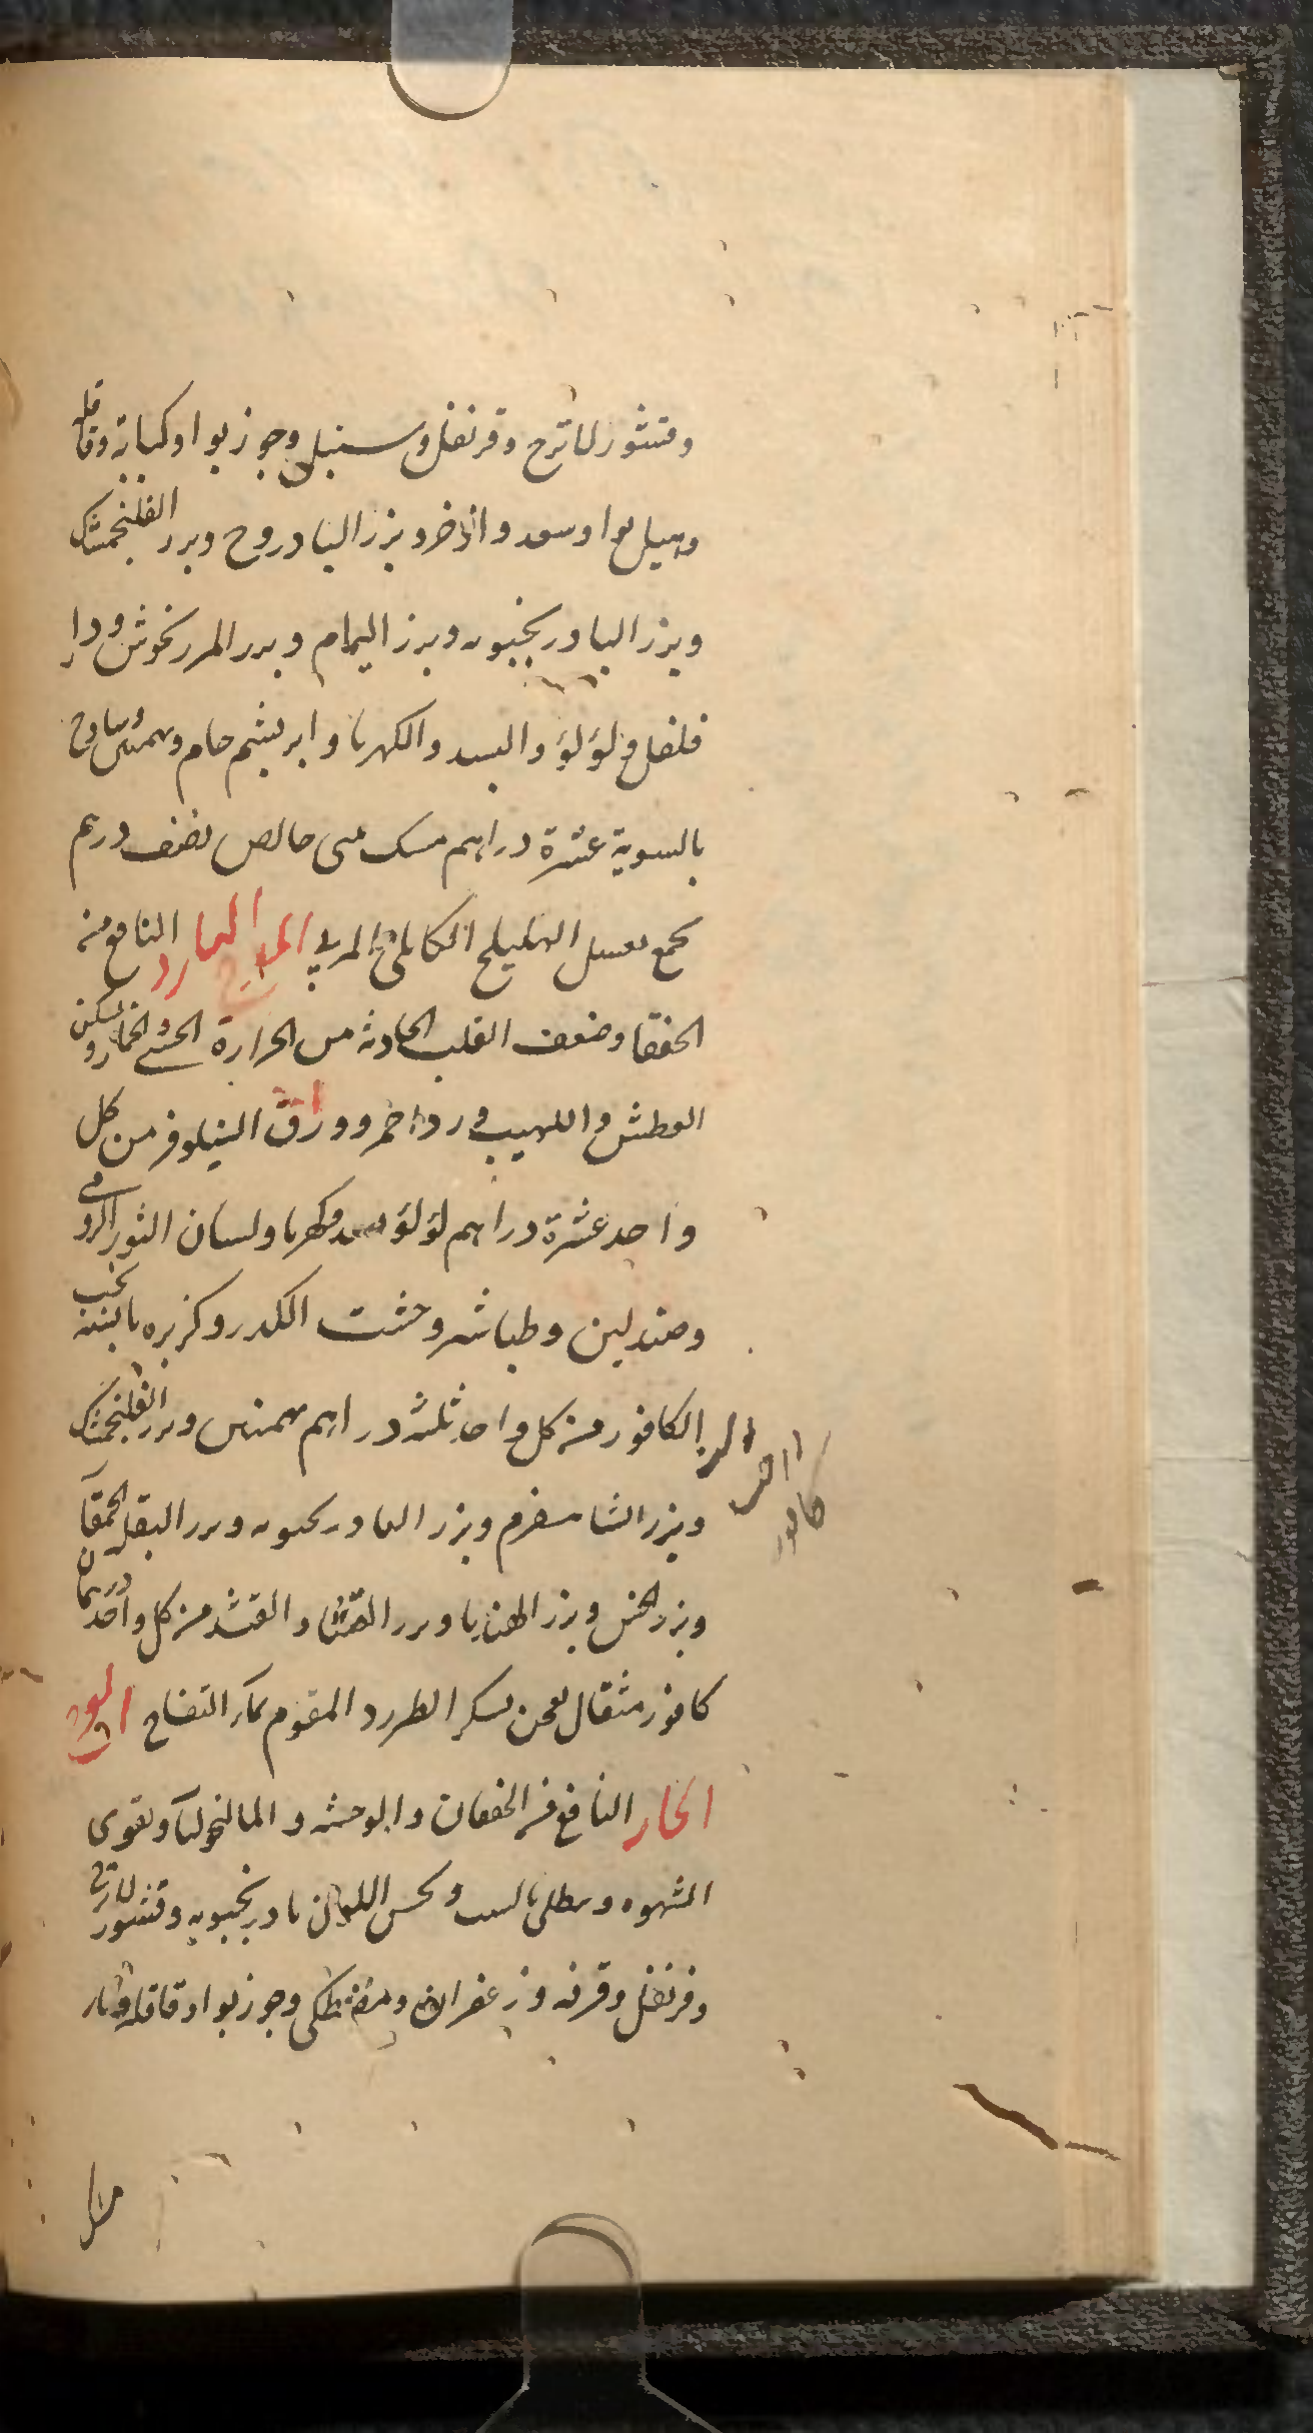 وقشور لاترج وقرنفل وسنبل وجوزبوا وكبابة وقاقله
وهيل بوا وسعد واذخر وبزر البادروج وبزر الفلنجمشك
وبزر البادرنجبويه وبزر النمام وبزر المرزنجوش ودار
فلفل ولؤلؤ والبسد والكهربا وابريشم خام وبهمنين وسادج
بالسوية عشرة دراهم مسك خالص نصف درهم
يجمع بعسل الهليلج الكابلي المربي المفرح البارد النافع منه
الخفقا وضعف القلب الحادثه من الحرارة والخمار ويسكن
العطش واللهيب ورد احمر وورق النيلوفر من كل
واحد عشرة دراهم لؤلؤ بسد وكهربا ولسان الثور الرومي
وصندلين وطباشير وخشت الكدر وكزبره يابسه نخب
الكافور من كل واحد ثلثه دراهم بهمنين وبزر الفلنجمشك
وبزر الشاهسفرم وبزر البادرنجبويه وبزر البقل الحمقآ
وبزر الخس وبزر الهندبا وبزر القثا والقثد من كل واحد درهمان
كافور مثقال يعجن بسكر الطبرزد المقوم بمآء التفاح المفرح
الحار النافع من الخفقان والوحشه والمالنخوليآ ويقوى
الشهوه وبطلي بالسب ويحسن اللون بادرنجبويه وقشور لاترج
وقرنفل وقرفه وزعفران ومصطكى وجوزبوا وقاقله